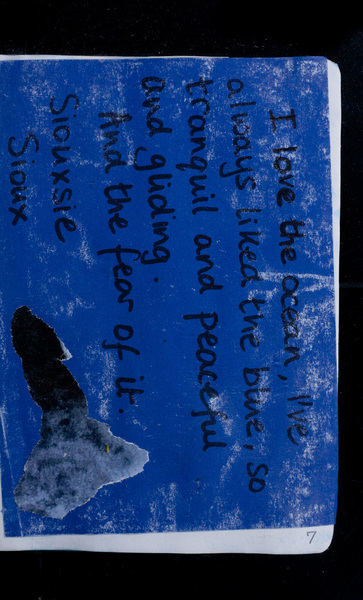 I love the ocean, I've
always liked the blue, so
tranquil and peaceful
and gliding.
And the fear of it.
Siouxsie
Sioux
7